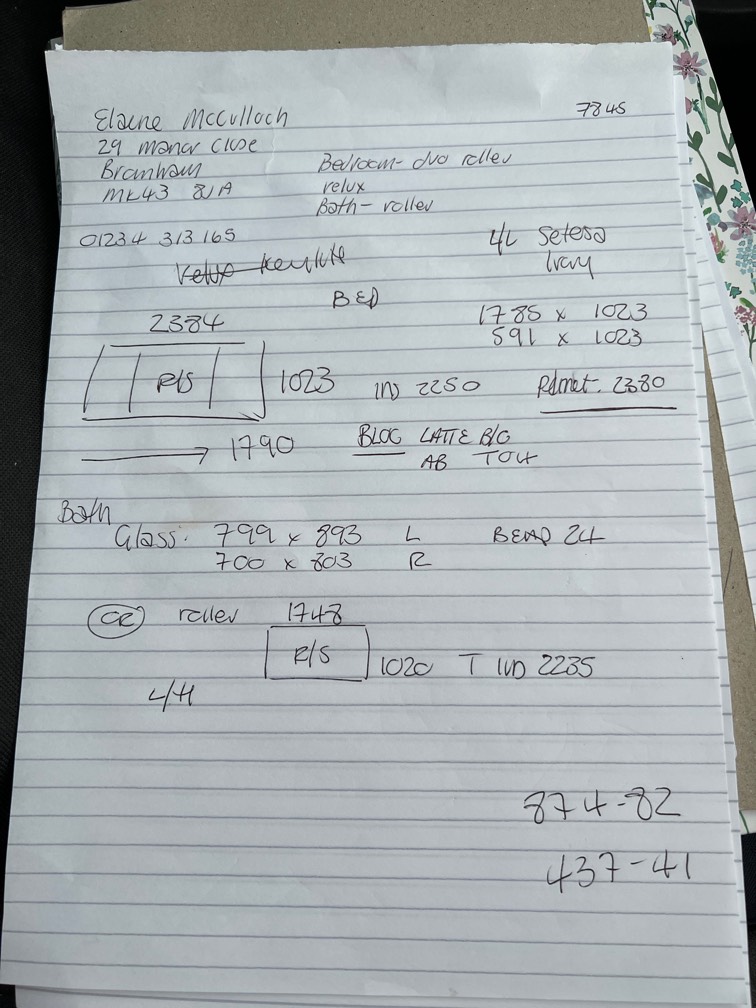 Elaine McCulloch
7845
29 Manor Close
Bromham
MK43 8JA
Bedroom - duo roller
velux
Bath - roller
01234 313165
Velux Keylite
4L Setesa
Ivory
BED
2384
1785 x 1023
591 x 1023
R/S
1023
IND 2250
Rdmet. 2380
1790
BLOC LATTE B/O
AB TO4
Bath
Glass. 799 x 893 L
BEAD 24
700 x 803 R
OR roller 1748
R/S
1020 T IND 2235
L/H
874-82
437-41